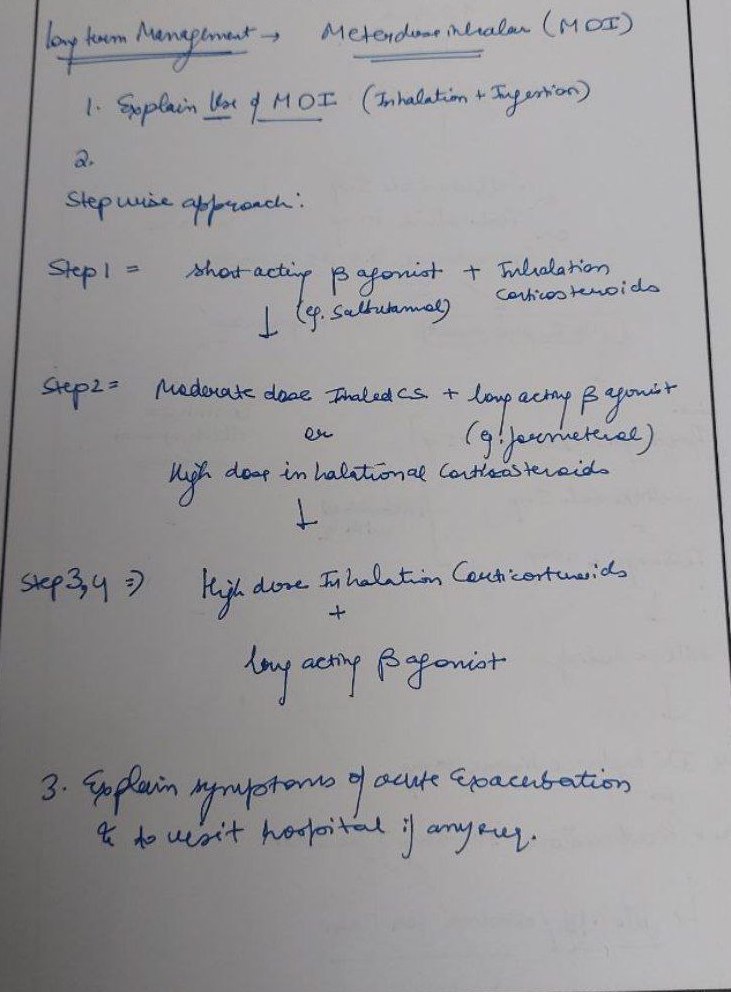 Long term Management → Meterdose inhalar (MDI)
1. Explain Use of MDI (Inhalation + Ingestion)
2.
Stepwise approach:
Step 1 = short acting β agonist + Inhalation
corticosteroids
↓ (eg. Salbutamol)
Step 2 = Moderate dose Inhaled CS + long acting β agonist
or (eg: formeterol)
High dose inhalational Corticosteroids
↓
Step 3,4 ⇒ High dose Inhalation Corticosteroids
+
long acting β agonist
3. Explain symptoms of acute Exacerbation
& to visit hospital if any req.